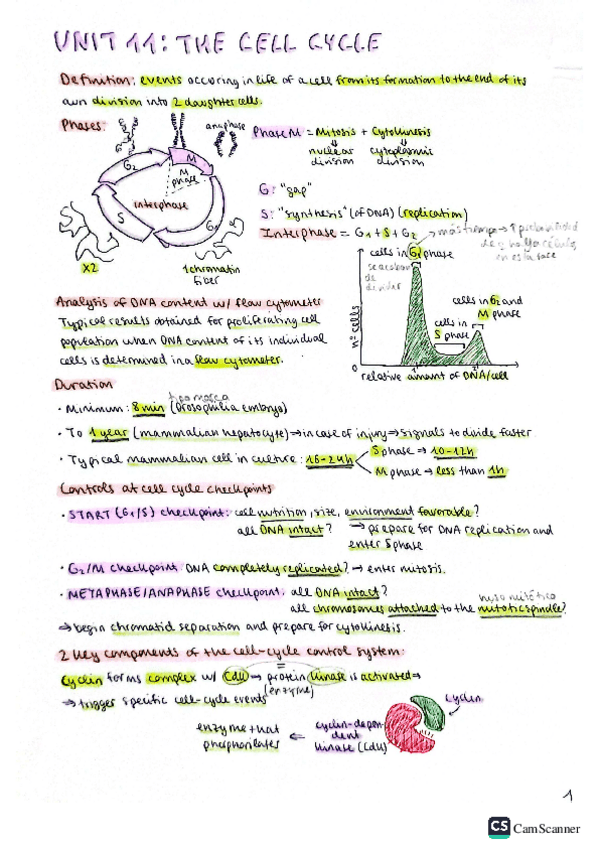 UNIT 11: THE CELL CYCLE
Definition: events occuring in life of a cell from its formation to the end of its
own division into 2 daughter cells.
Phases:
anaphase
Phase M = Mitosis + Cytokinesis
nuclear division
cytoplasmic division
G2
M
M phase
interphase
S
G1
X2
1 chromatin fiber
G: "gap"
S: "synthesis" (of DNA) (replication)
Interphase = G1 + S + G2
más tiempo → ↑ probabilidad
en esta fase
cells in G1 phase
se acaban de dividir
cells in G2 and M phase
cells in S phase
nº cells
1
2
relative amount of DNA/cell
Analysis of DNA content w/ flow cytometer
Typical results obtained for proliferating cell
population when DNA content of its individual
cells is determined in a flow cytometer.
Duration
tipo mosca
· Minimum: 8 min (Drosophilia embryo)
· To 1 year (mammalian hepatocyte) → in case of injury → signals to divide faster
· Typical mammalian cell in culture: 16-24h
S phase → 10-12h
M phase → less than 1h
Controls at cell cycle checkpoints
· START (G1/S) checkpoint: cell nutrition, size, environment favorable?
all DNA intact? → prepare for DNA replication and
enter S phase
· G2/M checkpoint: DNA completely replicated? → enter mitosis.
· METAPHASE/ANAPHASE checkpoint: all DNA intact?
huso mitótico
all chromosomes attached to the mitotic spindle?
⇒ begin chromatid separation and prepare for cytokinesis.
2 key components of the cell-cycle control system:
Cyclin forms complex w/ Cdk → protein kinase is activated →
(enzyme)
⇒ trigger specific cell-cycle events
cyclin
enzyme that phosphorilates ⇐ cyclin-dependent kinase (Cdk)
1
CS CamScanner